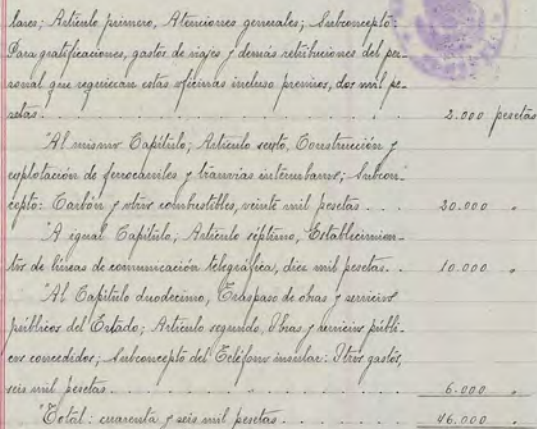 lares; Artículo primero, Atenciones generales; Subconcepto:
Para gratificaciones, gastos de viajes y demás retribuciones del per-
sonal que requieran estas oficinas incluso premios, dos mil pe-
setas . . . . . . . . . . . . . . . . 2.000 pesetas
"Al mismo Capítulo; Artículo sexto, Construcción y
explotación de ferrocarriles y tranvías interurbanos; Subcon-
cepto: Carbón y otros combustibles, veinte mil pesetas . . . 20.000 "
"A igual Capítulo; Artículo séptimo, Establecimien-
tos de líneas de comunicación telegráfica, diez mil pesetas. . 10.000 "
"Al Capítulo duodecimo, Traspaso de obras y servicios
públicos del Estado; Artículo segundo, Obras y servicios públi-
cos concedidos; Subconcepto del Teléfono insular: Otros gastos,
seis mil pesetas . . . . . . . . . . . . . 6.000 "
"Total: cuarenta y seis mil pesetas . . . . . . . 46.000 "